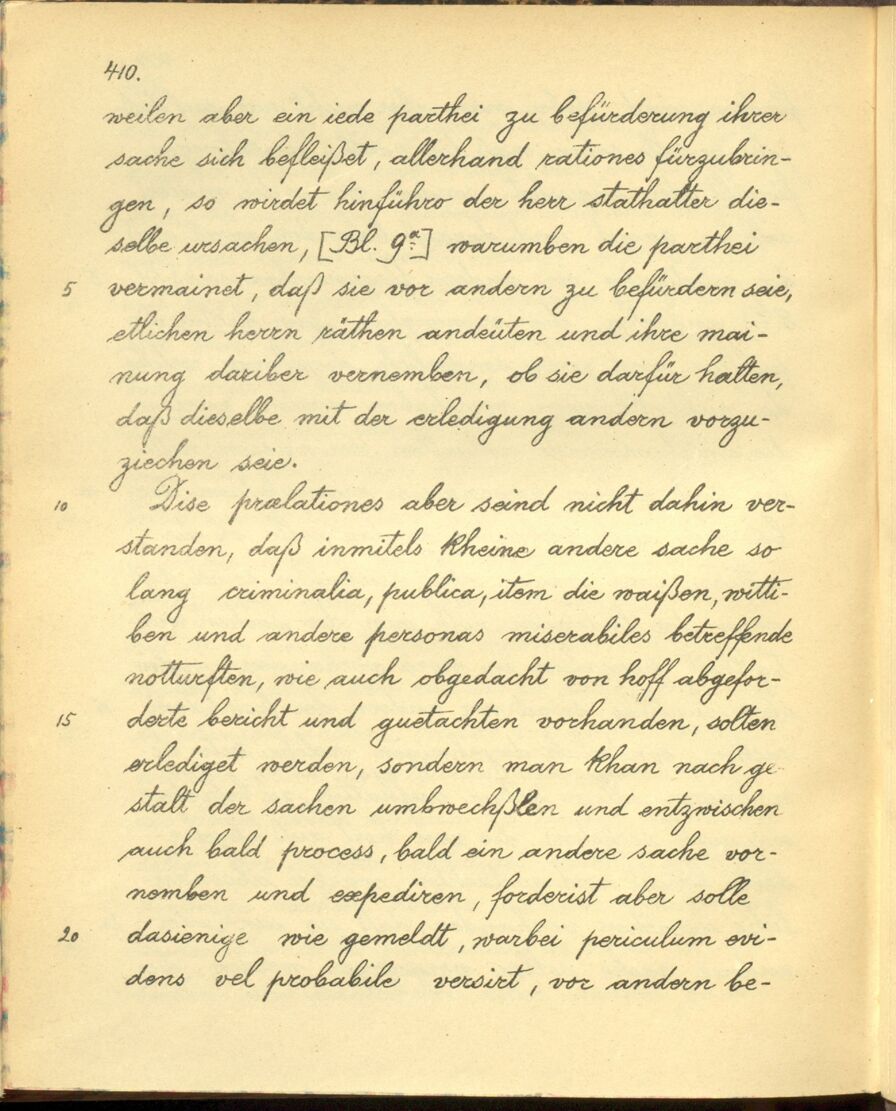 410.
weilen aber ein iede parthei zu befürderung ihrer
sache sich befleißet, allerhand rationes fürzubrin-
gen, so wirdet hinführo der herr stathalter die-
selbe ursachen, [Bl. 9a] warumben die parthei
5 vermainet, daß sie vor andern zu befürdern seie,
etlichen herrn räthen andeüten und ihre mai-
nung dariber vernemben, ob sie darfür halten,
daß dieselbe mit der erledigung andern vorzu-
ziechen seie.
10 Dise prælationes aber seind nicht dahin ver-
standen, daß inmitels kheine andere sache so
lang criminalia, publica, item die waißen, witti-
ben und andere personas miserabiles betreffende
notturften, wie auch obgedacht von hoff abgefor-
15 derte bericht und guetachten vorhanden, solten
erlediget werden, sondern man khan nach ge
stalt der sachen umbwechßlen und entzwischen
auch bald process, bald ein andere sache vor-
nemben und expediren, forderist aber solle
20 dasienige wie gemeldt, warbei periculum evi-
dens vel probabile versirt, vor andern be-